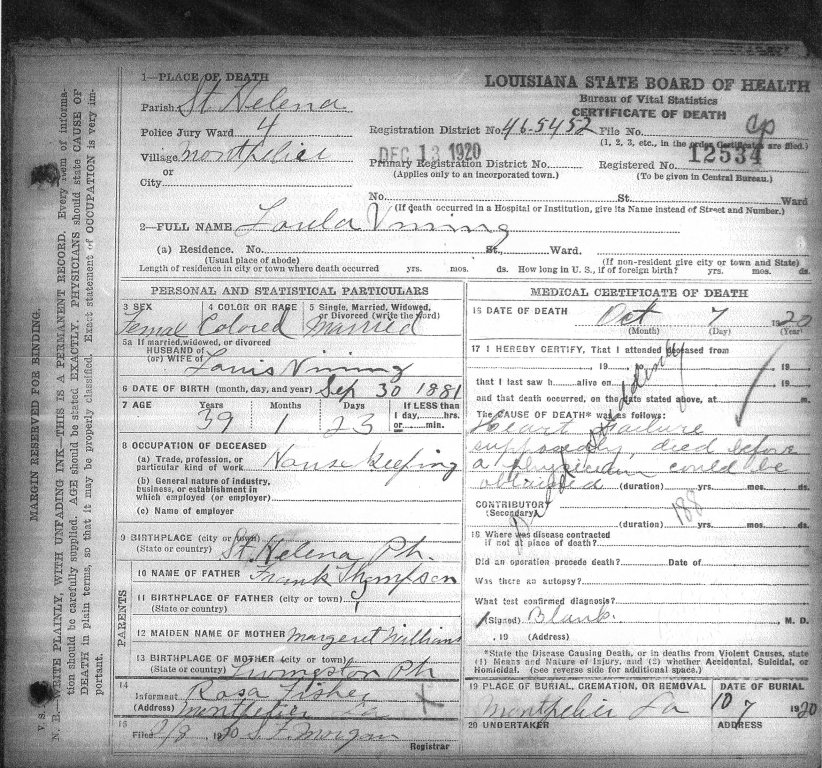 LOUISIANA STATE BOARD OF HEALTH
Bureau of Vital Statistics
CERTIFICATE OF DEATH
1—PLACE OF DEATH
Parish St Helena
Police Jury Ward 4
Village Montpelier
or
City
Registration District No. 46-5452 File No.
(1, 2, 3, etc., in the order Certificates are filed.)
DEC 13 1920
Primary Registration District No. Registered No. 12534
(Applies only to an incorporated town.) (To be given in Central Bureau.)
No. St. Ward
(If death occurred in a Hospital or Institution, give its Name instead of Street and Number.)
2—FULL NAME Loula Vining
(a) Residence. No. St. Ward.
(Usual place of abode) (If non-resident give city or town and State)
Length of residence in city or town where death occurred yrs. mos. ds. How long in U. S., if of foreign birth? yrs. mos. ds.
PERSONAL AND STATISTICAL PARTICULARS
3 SEX 4 COLOR OR RACE 5 Single, Married, Widowed, or Divorced (write the word)
Female Colored Married
5a If married, widowed, or divorced
HUSBAND of
(or) WIFE of Louis Vining
6 DATE OF BIRTH (month, day, and year) Sep 30 1881
7 AGE Years Months Days If LESS than
1 day, hrs.
39 1 23 or min.
8 OCCUPATION OF DECEASED
(a) Trade, profession, or
particular kind of work House keeping
(b) General nature of industry,
business, or establishment in
which employed (or employer)
(c) Name of employer
9 BIRTHPLACE (city or town)
(State or country) St. Helena Ph.
PARENTS
10 NAME OF FATHER Frank Thompson
11 BIRTHPLACE OF FATHER (city or town)
(State or country)
12 MAIDEN NAME OF MOTHER Margeret Williams
13 BIRTHPLACE OF MOTHER (city or town)
(State or country) Livingston Ph
14
Informant Rosa Fisher
(Address) Montpelier La
15
Filed 12/8 1920 S. F. Morgan
Registrar
MEDICAL CERTIFICATE OF DEATH
16 DATE OF DEATH Oct 7 1920
(Month) (Day) (Year)
17 I HEREBY CERTIFY, That I attended deceased from
19 to 19
that I last saw h alive on 19
and that death occurred, on the date stated above, at m.
The CAUSE OF DEATH* was as follows:
Heart Failure
supposedly, died before
a physician could be
obtained (duration) yrs. mos. ds.
CONTRIBUTORY
(Secondary)
(duration) yrs. mos. ds.
Died suddenly
188
18 Where was disease contracted
if not at place of death?
Did an operation precede death? Date of
Was there an autopsy?
What test confirmed diagnosis?
(Signed) Blank. M. D.
, 19 (Address)
*State the Disease Causing Death, or in deaths from Violent Causes, state
(1) Means and Nature of Injury, and (2) whether Accidental, Suicidal, or
Homicidal. (see reverse side for additional space.)
19 PLACE OF BURIAL, CREMATION, OR REMOVAL DATE OF BURIAL
Montpelier La 10 7 1920
20 UNDERTAKER ADDRESS
MARGIN RESERVED FOR BINDING.
N. B.—WRITE PLAINLY, WITH UNFADING INK—THIS IS A PERMANENT RECORD. Every item of informa-
tion should be carefully supplied. AGE should be stated EXACTLY. PHYSICIANS should state CAUSE OF
DEATH in plain terms, so that it may be properly classified. Exact statement of OCCUPATION is very im-
portant.
V S